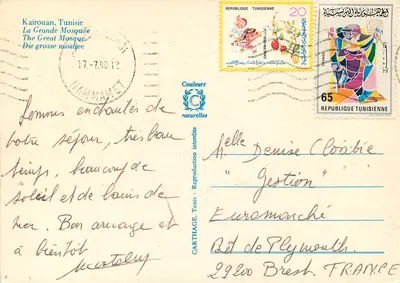 Kairouan, Tunisie
La Grande Mosquée
The Great Mosque
Die grosse moshee
17-7.80 12
HAMMAMET
20
REPUBLIQUE TUNISIENNE
65
REPUBLIQUE TUNISIENNE
Couleurs
C
naturelles
CARTHAGE, Tunis - Reproduction interdite
Sommes enchantés de
votre séjour, très beau
temps, beaucoup de
soleil et de bains de
mer. Bon courage et
à bientôt
Melle Denise
"Gestion"
Euromarché
Rd de Plymouth
29200 Brest FRANCE